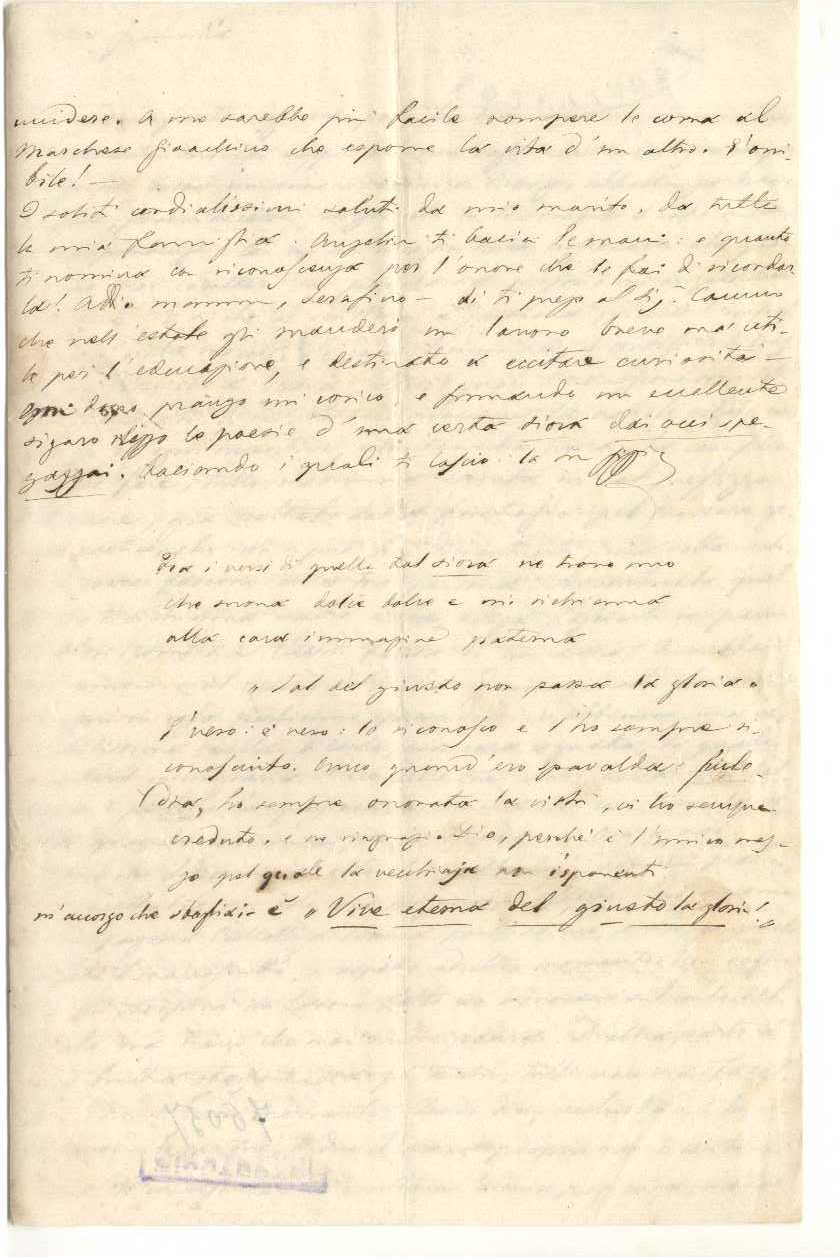 uccidere. A me sarebbe più facile rompere le corna al
Marchese Gioacchino che esporre la vita d'un altro. È orri-
bile! —
I soliti cordialissimi saluti da mio marito, da tutta
la mia famiglia. Angelin ti bacia le mani: e quanto
ti nomina con riconoscenza per l'onore che le fai di ricordar-
la! Addio mammà, Serafino — di ti prego al Sig.
che nell'estate gli manderò un lavoro breve ma uti-
le per l'educazione, e destinato a eccitare curiosità —
Ogni dopo pranzo mi corico, e fumando un eccellente
sigaro leggo le poesie d'una certa siora dai occi spe-
gazzai. Baciando i quali ti lascio. la
Fra i versi di quella tal siora ne trovo uno
che suona dolce dolce e mi richiama
alla cara immagine paterna
" Sol del giusto non passa la gloria "
È vero: è vero: lo riconosco e l'ho sempre ri-
conosciuto. Anco quand'ero spavalda e
ho sempre onorata la virtù, ci ho sempre
creduto, e ne ringrazio Dio, perché è l'unico mez-
zo pel quale la vecchiaja non
m'accorgo che sbagliai — è " Vive eterna del giusto la gloria! "